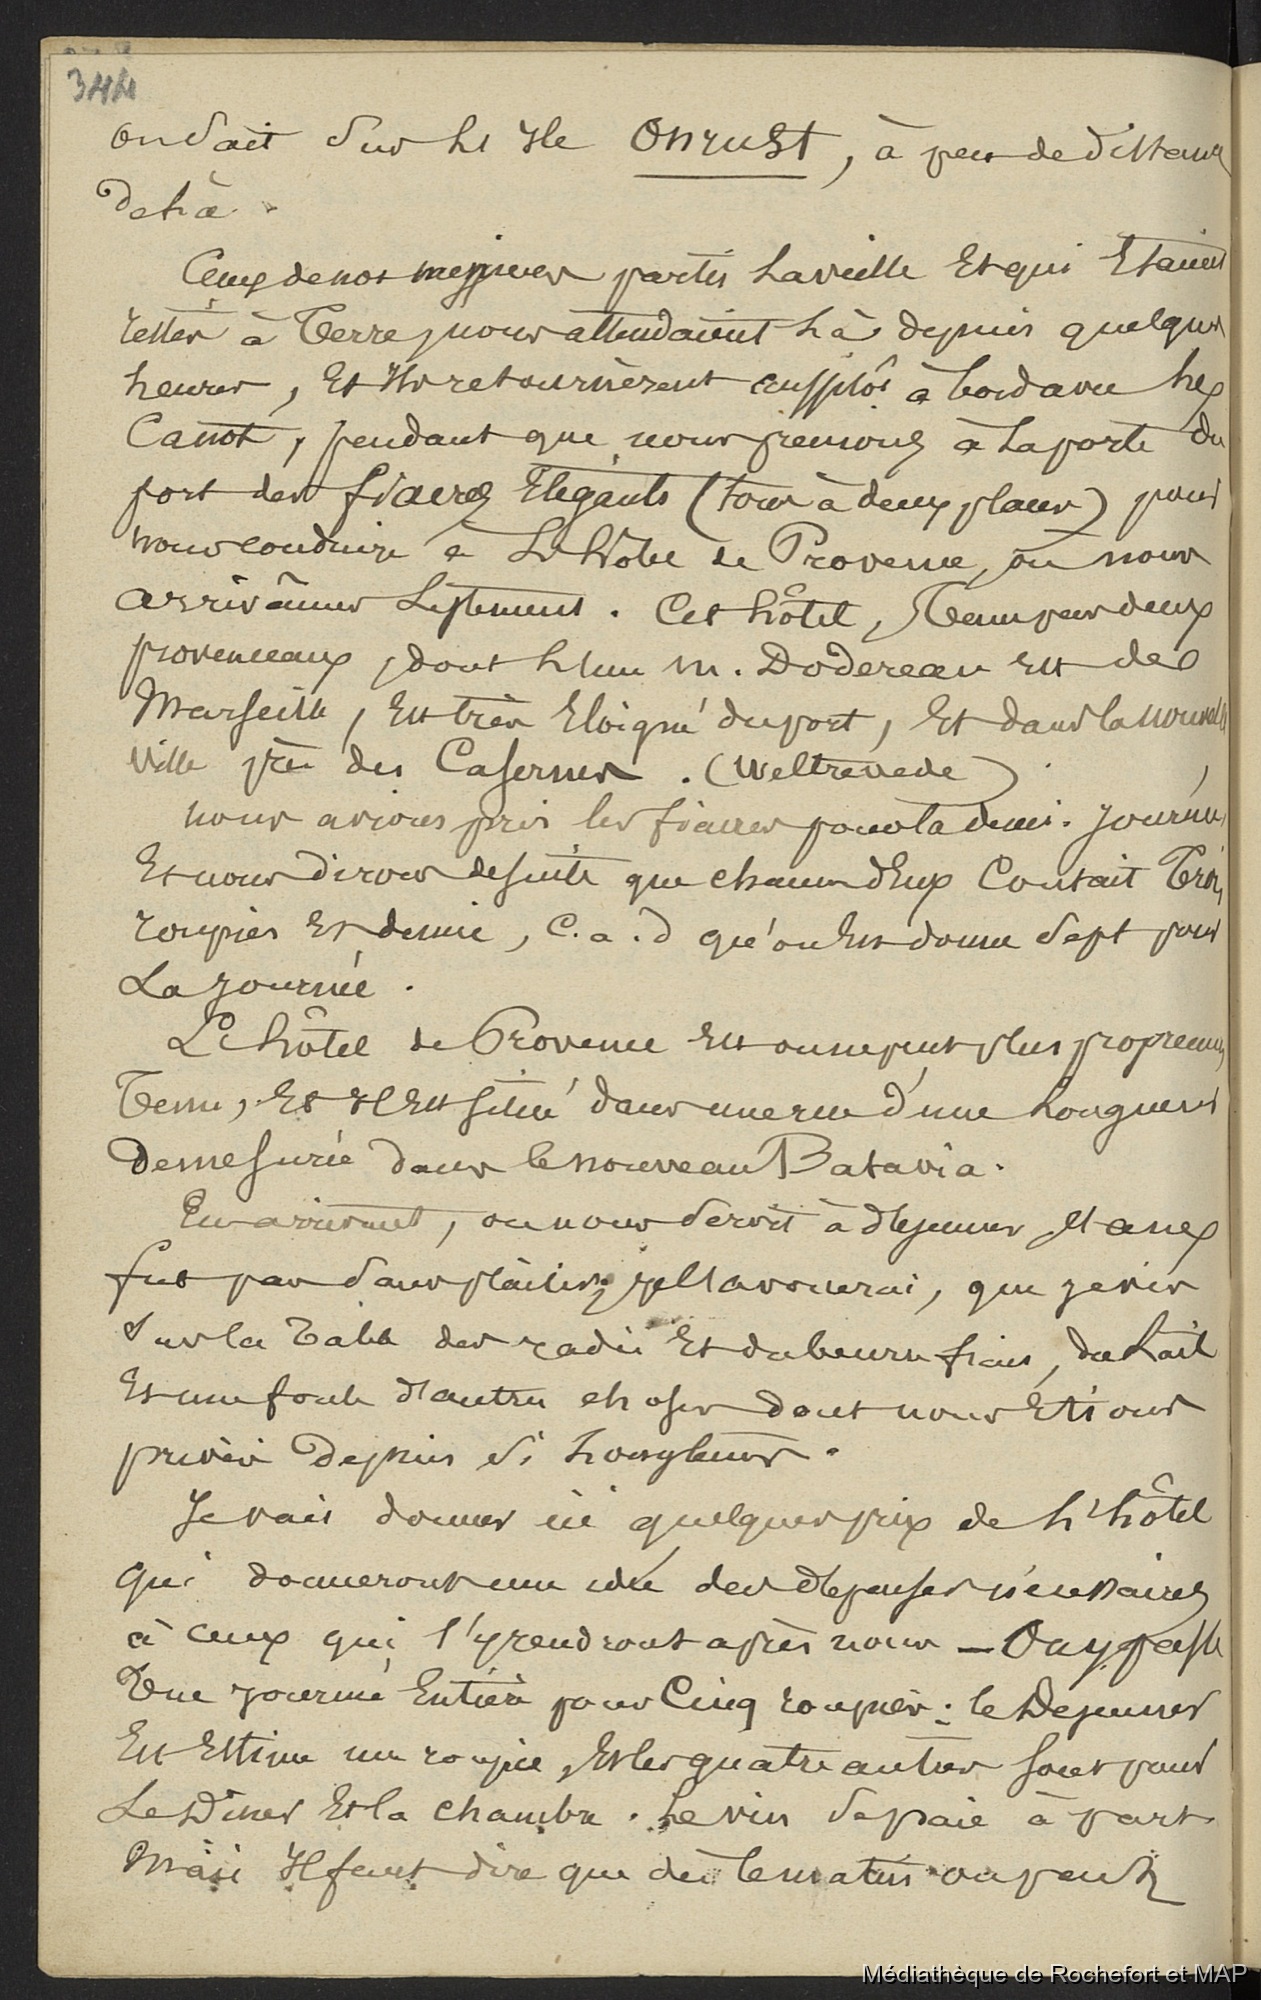 344
on était sur l'île Onrust, à peu de distance
de là.
Ceux de nos messieurs partis la veille et qui étaient
restés à terre, nous attendaient là depuis quelques
heures, et ils retournèrent aussitôt à bord avec les
Canot, pendant que nous prenions à la porte du
port des fiacres élégants (tous à deux places) pour
nous conduire à l'hôtel de Provence, où nous
arrivâmes lestement. Cet hôtel, tenu par deux
provenceaux, dont l'un M. Dodereau est de
Marseille, est très éloigné du port, et dans la nouvelle
ville près des Casernes. (Weltrevede)
nous avions pris les fiacres pour la demi-journée,
et nous dirons de suite que chacun d'eux coutait trois
roupies et demie, c.a.d qu'on en donne sept pour
La journée.
L'hôtel de Provence est on ne peut plus proprement
tenu, et il est situé dans une rue d'une longueur
demesurée dans le nouveau Batavia.
En arrivant, on nous servit à déjeuner, et ce ne
fut pas sans plaisir, je l'avouerai, que je vis
sur la table des radis et du beurre frais, du lait
et une foule d'autres choses dont nous étions
privés depuis si longtems.
Je vais donner ici quelques prix de l'hôtel
qui donneront une idée des dépenses nécessaires
à ceux qui s'y rendront après nous — On y passe
une journée entière pour cinq roupies : le déjeuner
est estimé une roupie, et les quatre autres sont pour
Le Diner et la chambre. Le vin se paie à part
Mais il faut dire que dès le matin on peut
Médiathèque de Rochefort et MAP